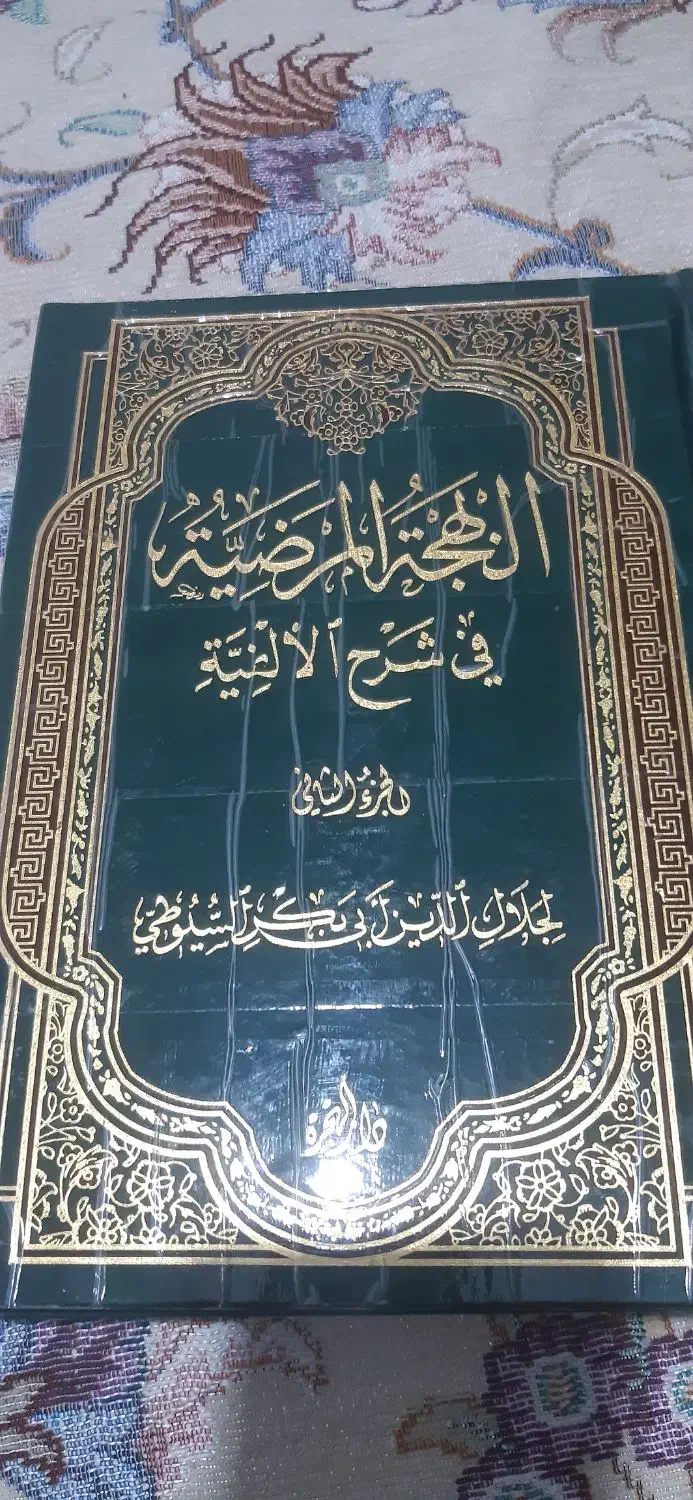 النَّهْجَةُ المَرضِيَّةُ
في شَرْحِ الأَلْفِيَّةِ
الجزءُ الثاني
لِجَلَالِ الدِّينِ أَبي بَكْرِ السُّيُوطِيّ
دار الهجرة